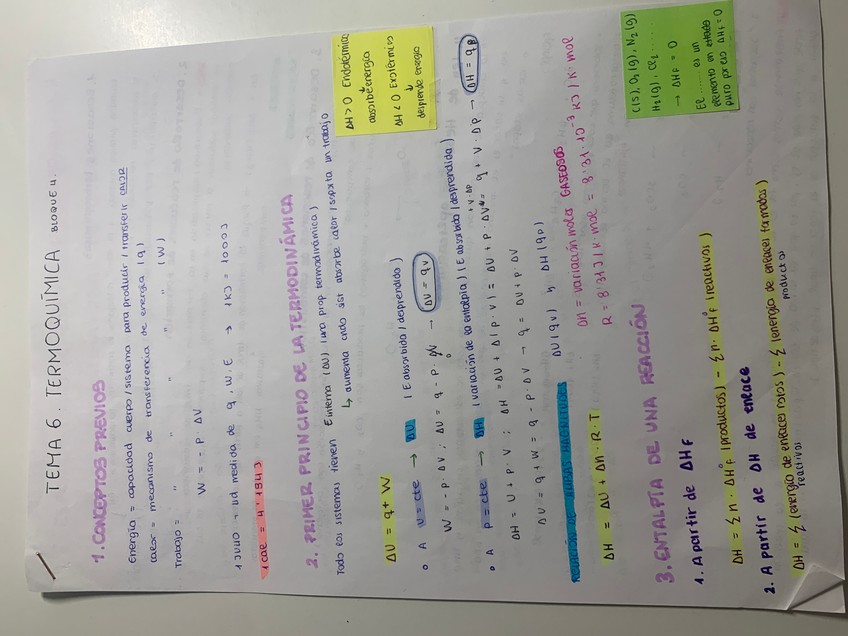 TEMA 6. TERMOQUÍMICA BLOQUE 4.
1. CONCEPTOS PREVIOS
Energía = capacidad cuerpo/sistema para producir/transferir CALOR
Calor = mecanismo de transferencia de energía (q)
Trabajo = " " " " (W)
W = - P · ΔV
1 JULIO → ud medida de q, W, E → 1KJ = 1000J
1 cal = 4'184J
2. PRIMER PRINCIPIO DE LA TERMODINÁMICA
Todo los sistemas tienen E interna (ΔU) (una prop termodinámica)
↳ aumenta cndo sist absorbe calor/soporta un trabajo
ΔH > 0 Endotérmica
↓
absorbe energía
ΔH < 0 Exotérmica
↓
desprende energía
ΔU = q + W
○ A V = cte → ΔU (E absorbida/desprendida)
W = -P · ΔV ; ΔU = q - P · ΔV → ΔU = qv
0
○ A P = cte → ΔH (variación de la entalpía) (E absorbida/desprendida)
ΔH = U + P · V ; ΔH = ΔU + Δ(P · V) = ΔU + P · ΔV + V · ΔP = q + V · ΔP → ΔH = qp
ΔU = q + W = q - P · ΔV → q = ΔU + P · ΔV
RELACIÓN DE AMBAS MAGNITUDES ΔU (qv) y ΔH (qp)
ΔH = ΔU + Δn · R · T
Δn = variación moles GASEOSOS
R = 8'31J/K·mol = 8'31·10⁻³ KJ/K·mol
3. ENTALPÍA DE UNA REACCIÓN
1. A partir de ΔHF
ΔH = Σn · ΔH°f (productos) - Σn · ΔH°f (reactivos)
C(s), O₂(g), N₂(g)
H₂(g), Cl₂ ......
→ ΔHF = 0
El ...... es un
elemento en estado
puro por eso ΔHF = 0
2. A partir de ΔH de enlace
ΔH = Σ (energía de enlaces rotos) - Σ (energía de enlaces formados)
reactivos productos